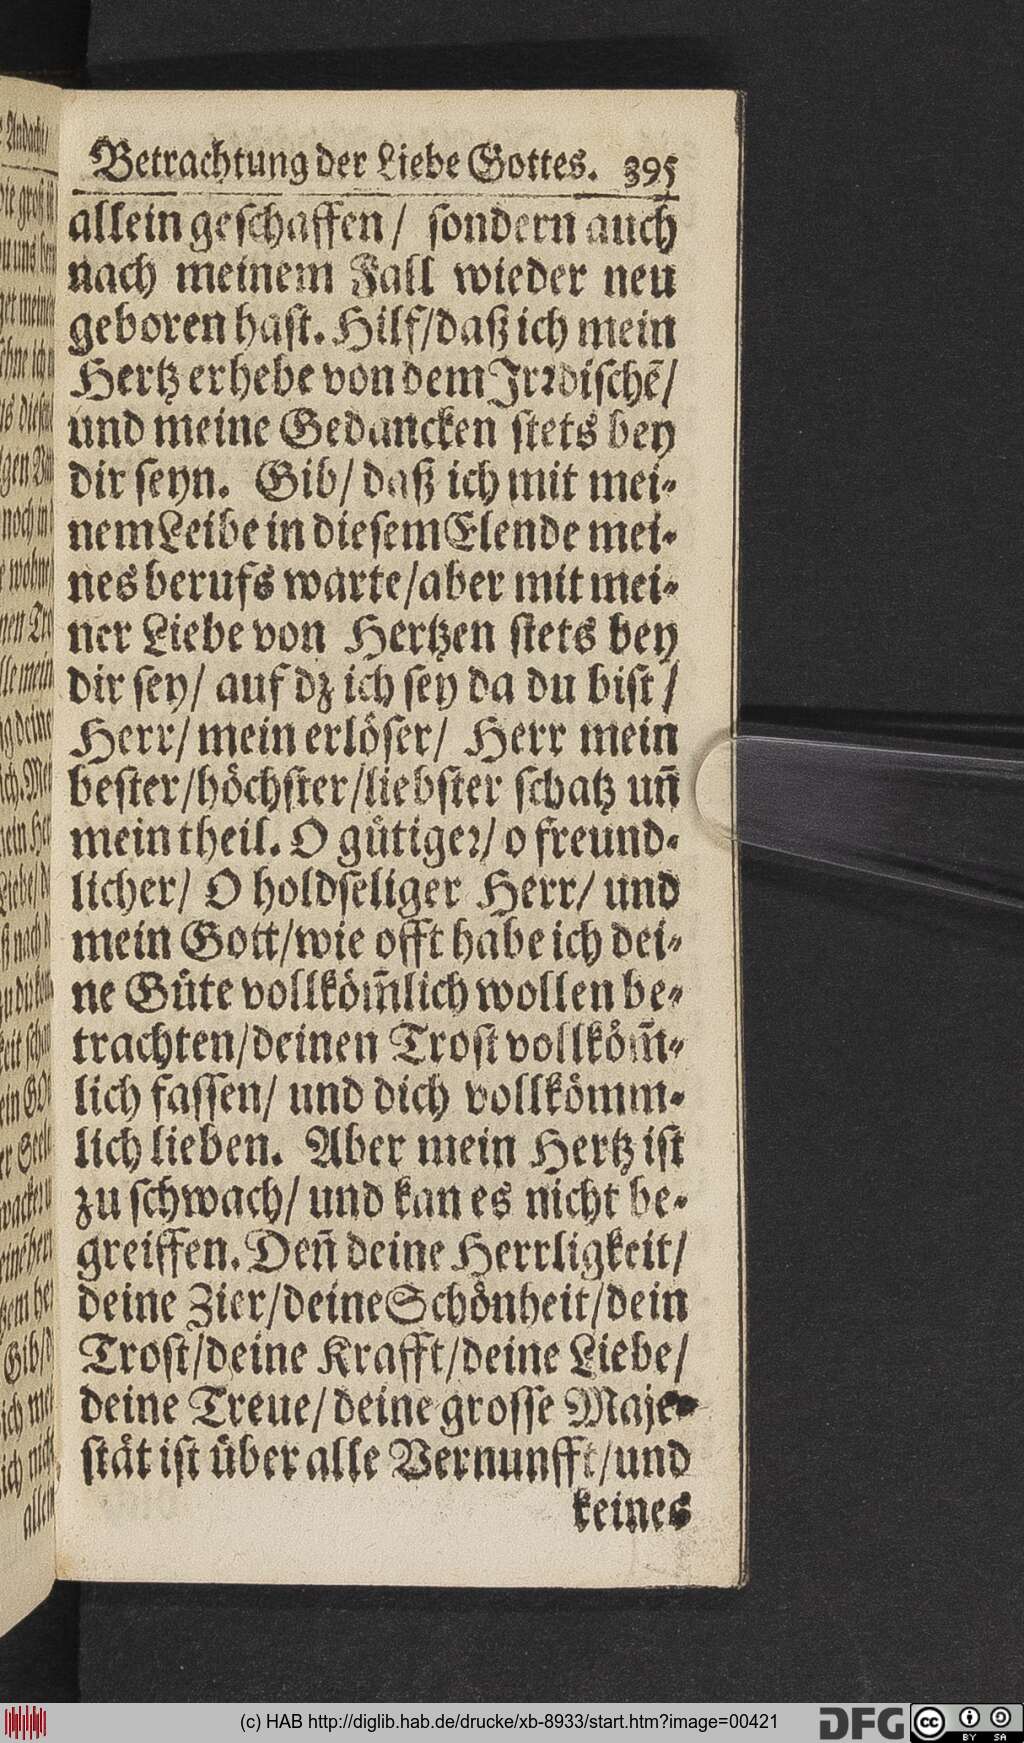 Betrachtung der Liebe Gottes. 395
allein geschaffen/ sondern auch
nach meinem Fall wieder neu
geboren hast. Hilf/daß ich mein
Hertz erhebe von dem Jrꝛdischẽ/
und meine Gedancken stets bey
dir seyn. Gib/ daß ich mit mei-
nem Leibe in diesem Elende mei-
nes berufs warte/aber mit mei-
ner Liebe von Hertzen stets bey
dir sey/ auf dz ich sey da du bist/
Herr/ mein erlöser/ Herr mein
bester/höchster/liebster schatz uñ
mein theil. O gütigeꝛ/ o freund-
licher/ O holdseliger Herr/ und
mein Gott/wie offt habe ich dei-
ne Güte vollköm̃lich wollen be-
trachten/deinen Trost vollköm̃-
lich fassen/ und dich vollkömm-
lich lieben. Aber mein Hertz ist
zu schwach/ und kan es nicht be-
greiffen. Deñ deine Herrligkeit/
deine Zier/deine Schönheit/dein
Trost/deine Krafft/deine Liebe/
deine Treue/ deine grosse Maje-
stät ist über alle Vernunfft/und
keines
(c) HAB http://diglib.hab.de/drucke/xb-8933/start.htm?image=00421
DFG
cc
BY SA